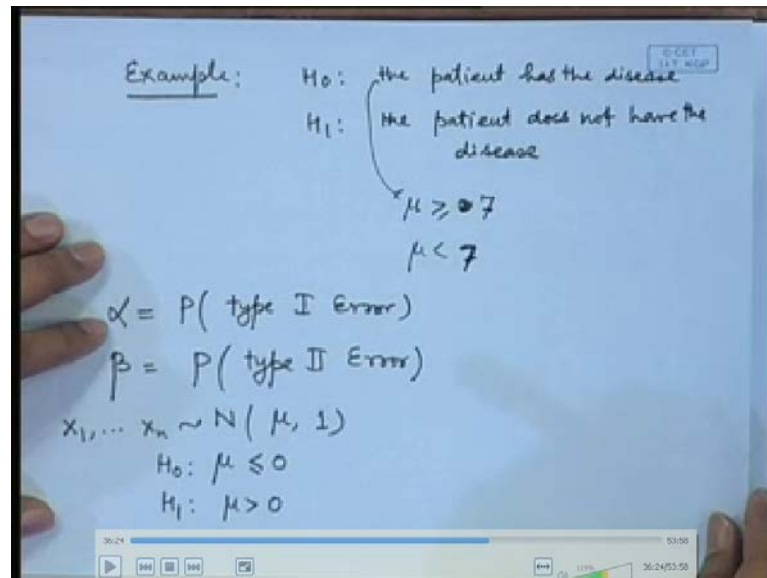 © CET
I.I.T. KGP
Example: H₀: the patient has the disease
H₁: the patient does not have the
disease
μ ≥ 7
μ < 7
α = P( type I Error)
β = P( type II Error)
x₁, ... xₙ ~ N( μ, 1)
H₀: μ ≤ 0
H₁: μ > 0
36:24 53:58
36:24/53:58